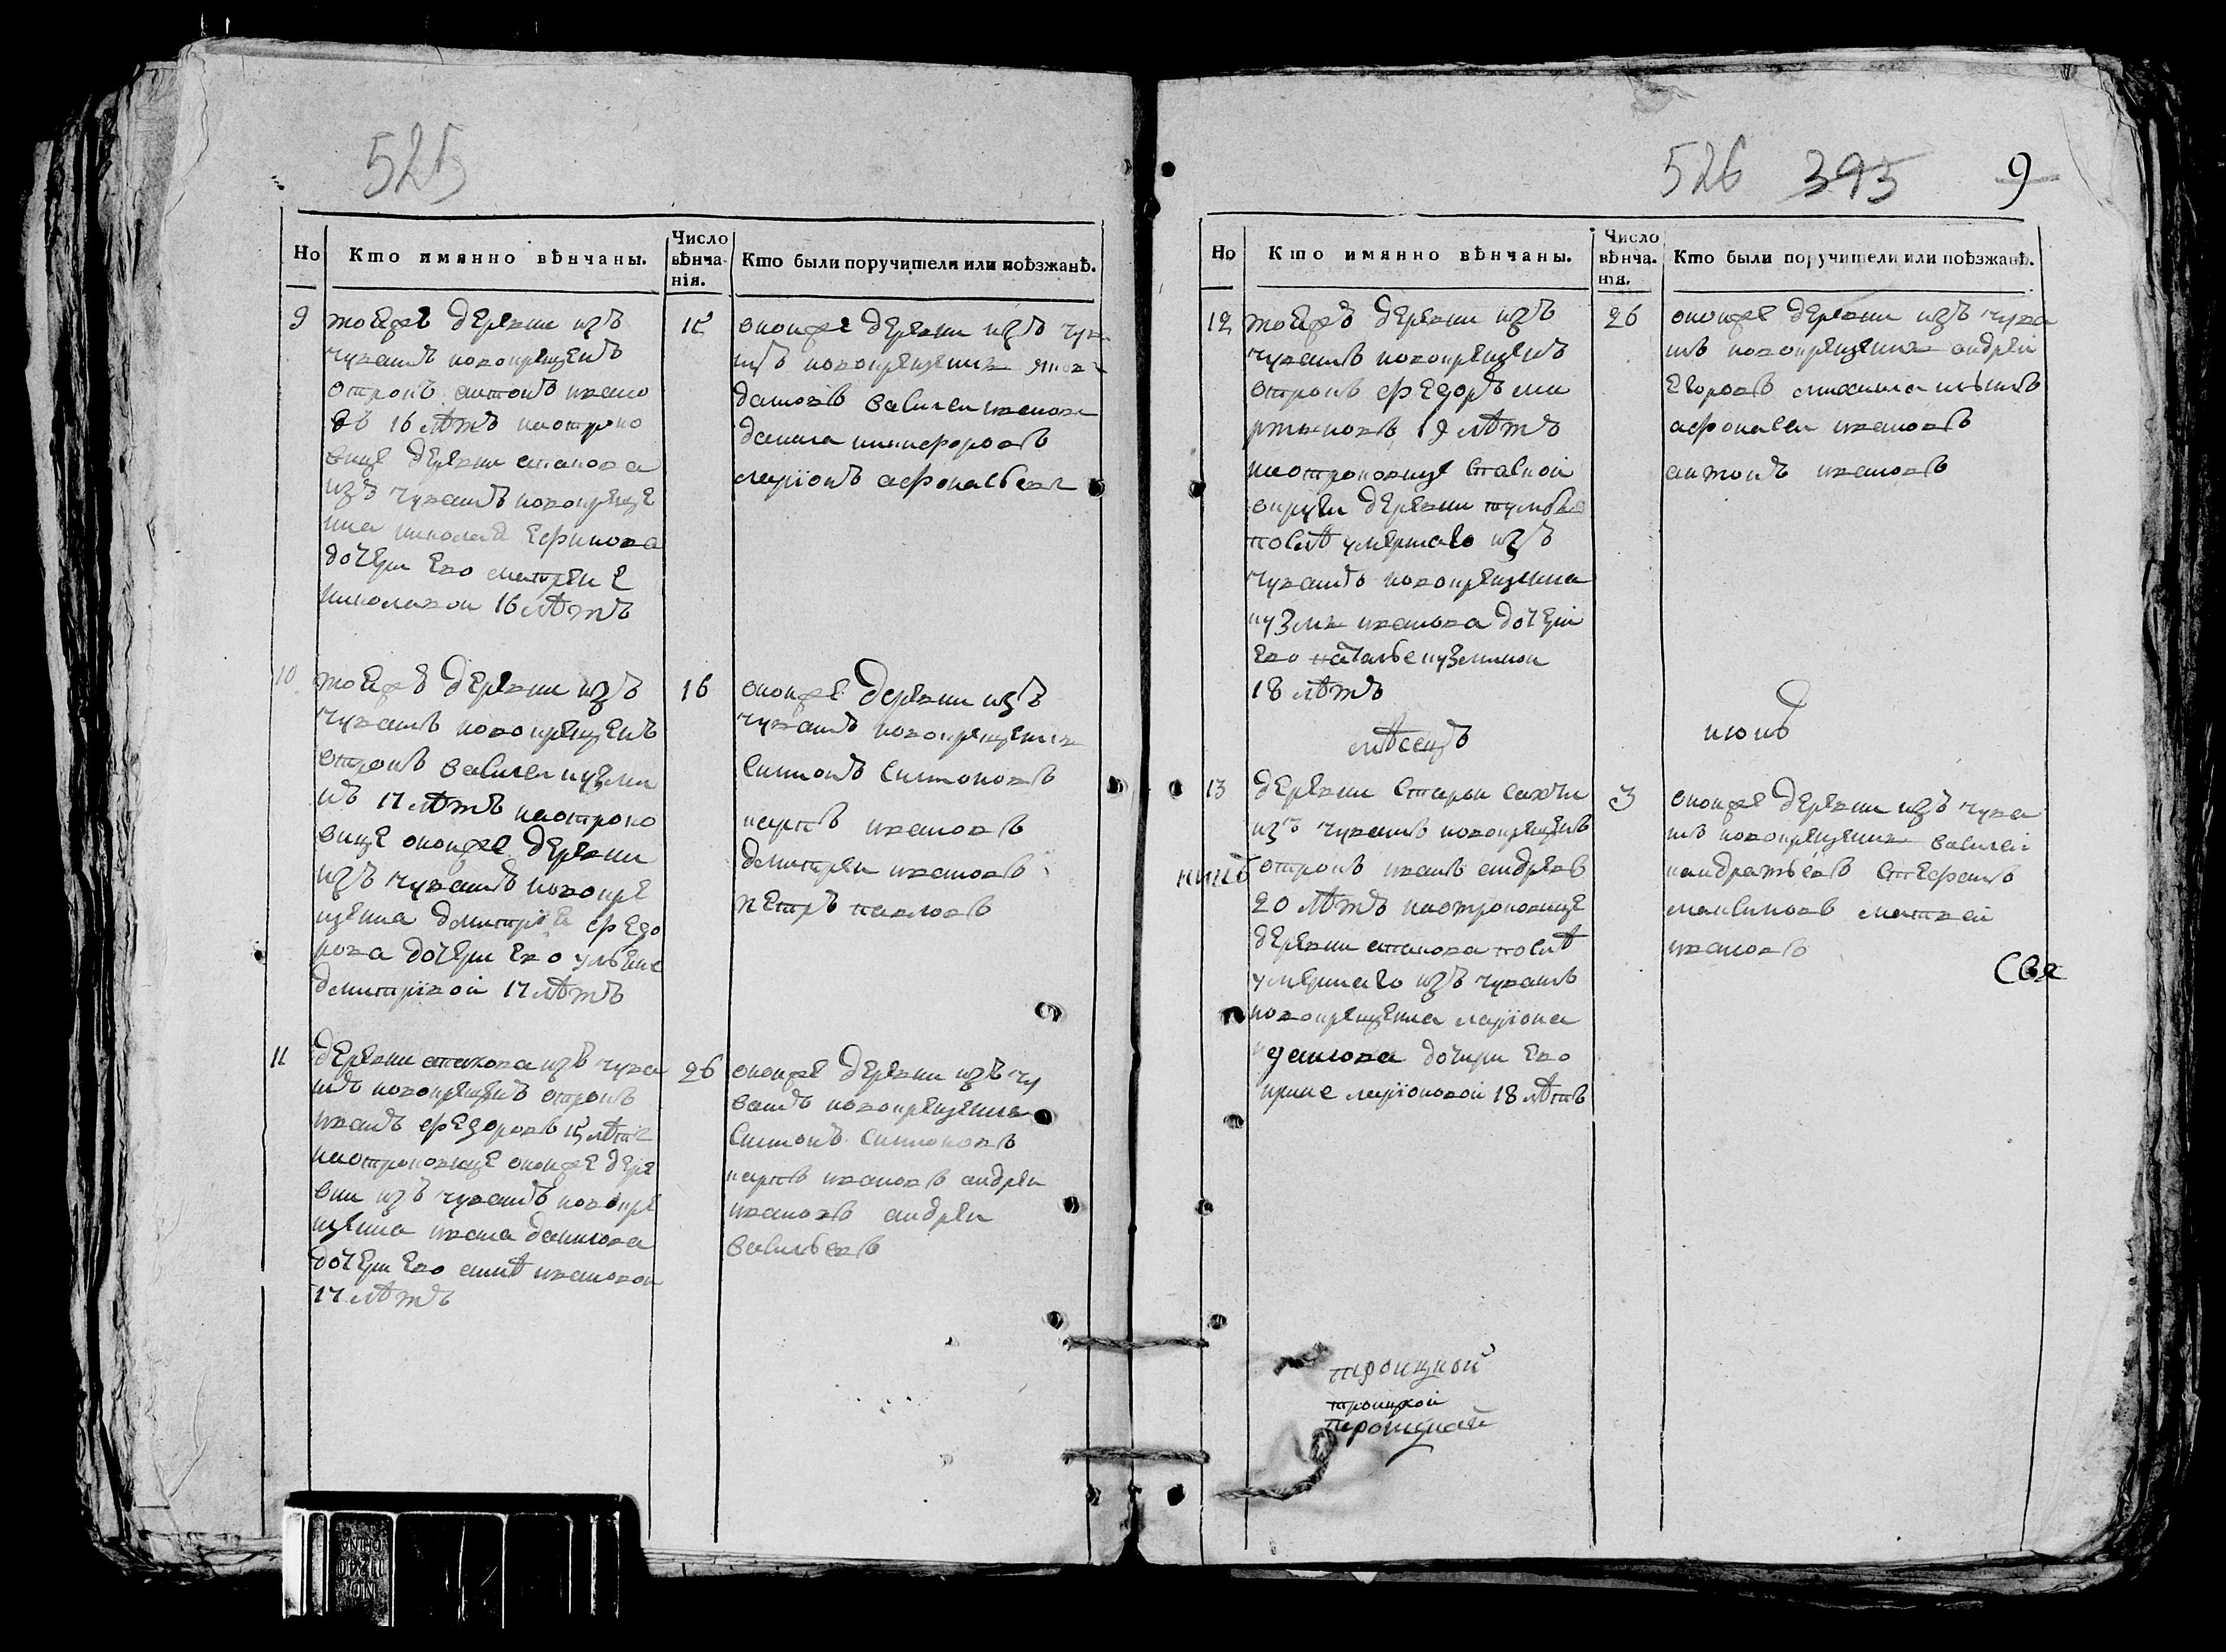 525
Но
Кто имянно вѣнчаны.
Число вѣнча-нія.
Кто были поручители или поѣзжанѣ.
9
тоежъ деревни изъ
чувашъ новокрещенъ
отрокъ антонъ ивано
въ 16 лѣтъ наотроко
вице деревни
изъ чувашъ новокреще
на николая ефимова
дочери ево матрен е
николавои 16 лѣтъ
15
оной же деревни изъ чува
шъ новокрещени
василеи иванов
данила никифоровъ
ларионъ афонасьевъ
10
тоежъ деревни изъ
чувашъ новокрещенъ
отрокъ василеи кузми
нъ 17 лѣтъ наотроко
вице оной же деревни
изъ чувашъ новокре
щена дмитриа федо
рова дочери ево ульяне
дмитривой 17 лѣтъ
16
оной же деревни изъ
чувашъ новокрещени
симионъ симионовъ
карпъ ивановъ
дмитреи ивановъ
петръ павловъ
11
деревни изъ чува
шъ новокрещенъ отрокъ
иванъ федоровъ 15 лѣтъ
наотроковице оной же дере
вни изъ чувашъ новокре
щена ивана данилова
дочери ево аннѣ ивановои
17 лѣтъ
26
оной же деревни изъ чу
вашъ новокрещени
симионъ симионовъ
карпъ ивановъ андреи
ивановъ андреи
васильевъ
526 393 9
Но
Кто имянно вѣнчаны.
Число вѣнча-нія.
Кто были поручители или поѣзжанѣ.
12
тоежъ деревни изъ
чувашъ новокрещенъ
отрокъ федоръ ма
ртыновъ 19 лѣтъ
наотроковице
округи деревни
послѣ умершаго изъ
чувашъ новокрещена
кузмы иванова дочери
ево наталье кузминои
18 лѣтъ
26
оной же деревни изъ чува
шъ новокрещени андреи
егоровъ
афонасеи ивановъ
антонъ ивановъ
мѣсецъ
июнь
13
деревни старои сахчи
изъ чувашъ новокрещенъ
отрокъ иванъ андревъ
20 лѣтъ наотроковице
деревни послѣ
умершаго изъ чувашъ
новокрещена лариона
данилова дочири ево
ирине ларионовой 18 лѣтъ
3
оной же деревни изъ чува
шъ новокрещени василеи
кандратьевъ стефанъ
максимовъ матвеи
ивановъ
Свя
троицкой
троицкой
троицкой